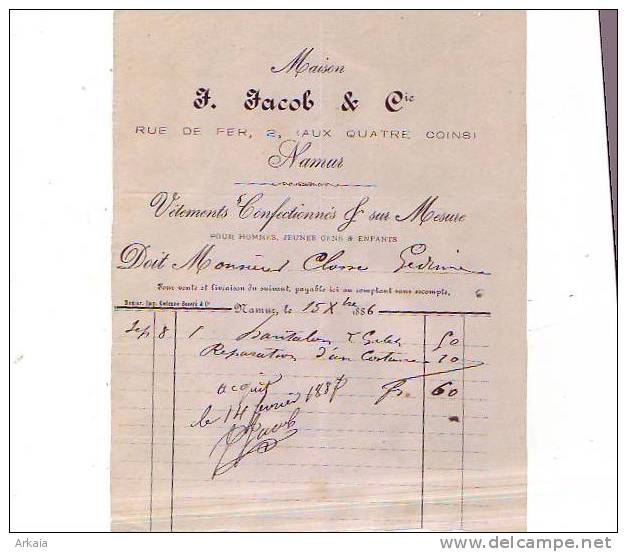 Maison
J. Jacob & Cie
RUE DE FER, 2, (AUX QUATRE COINS)
Namur
Vêtements Confectionnés & sur Mesure
POUR HOMMES, JEUNES GENS & ENFANTS
Doit Monsieur Closse
Pour vente et livraison du suivant, payable ici au comptant sans escompte.
Namur, Imp.
Namur, le 15 Xbre 1886
Sep 8 1 Pantalon & Gilet 50
Réparation d'un Costume 10
acquit fr. 60
le 14 février 1887
J Jacob
Arkaia
www.delcampe.net